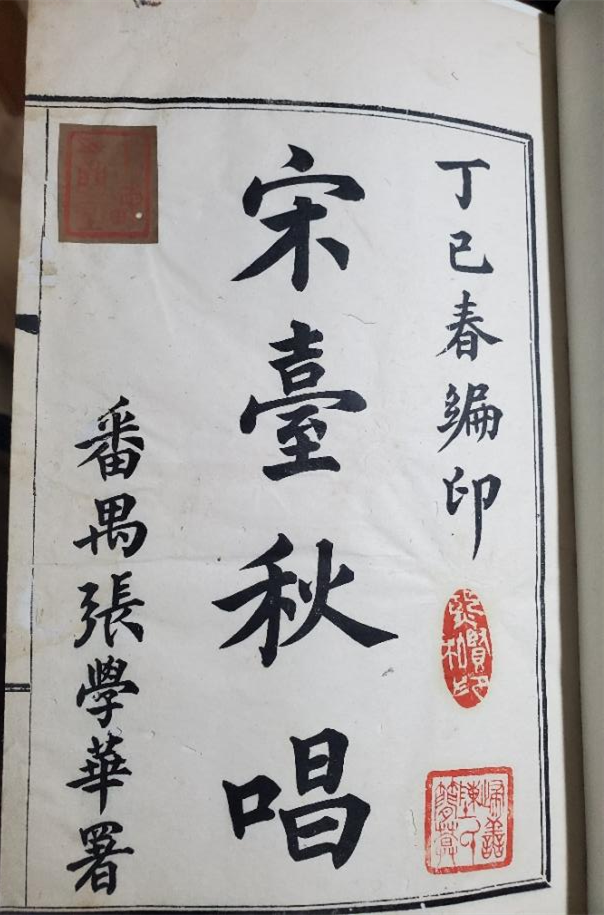 丁巳春編印
宋臺秋唱
番禺張學華署